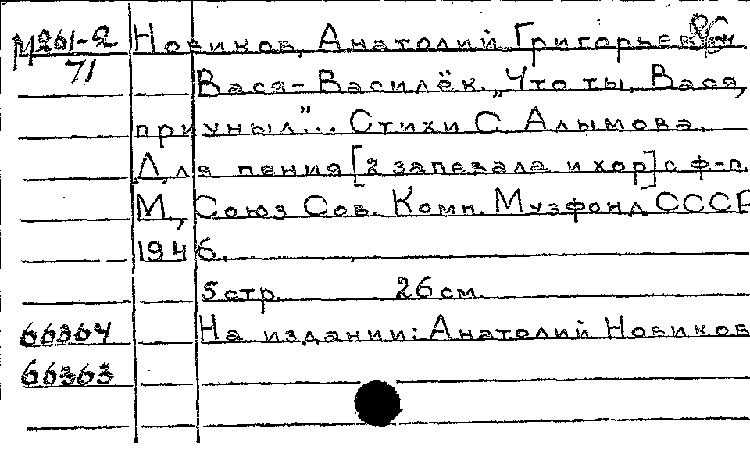 М 261-2 Новиков, Анатолий Григорьевич
71 Вася-Василёк. „Что ты, Вася,
приуныл"... Стихи С. Алымова.
Для пения [2 запевала и хор] с ф-п.
М., Союз Сов. Комп. Музфонд СССР
1946.
5 стр. 26 см.
66364 На издании: Анатолий Новиков
66363